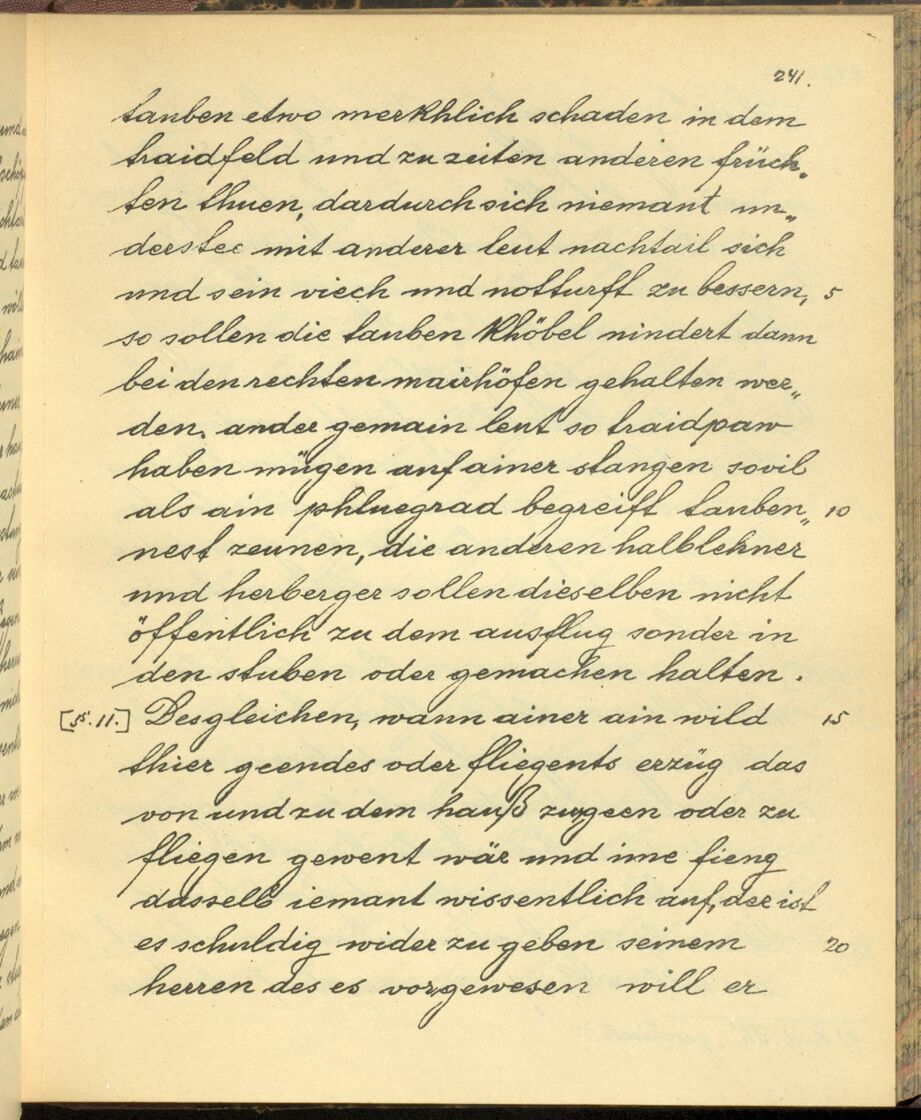 241.
tauben etwo merkhlich schaden in dem
traidfeld und zu zeiten anderen früch„
ten thuen, dardurch sich niemant un„
derstee mit anderer leut nachtail sich
und sein viech und notturfft zu bessern, 5
so sollen die tauben khöbel nindert dann
bei den rechten mairhöfen gehalten wer„
den. ander gemain leut so traidpaw
haben mügen auf ainer stangen sovil
als ain phluegrad begreifft tauben„ 10
nest zeunen, die anderen halblehner
und herberger sollen dieselben nicht
öffentlich zu dem ausflug sonder in
den stuben oder gemachen halten.
[§. 11.] Desgleichen, wann ainer ain wild 15
thier geendes oder fliegents erzüg das
von und zu dem hauß zugeen oder zu
fliegen gewent wär und ime fieng
dasselb iemant wissentlich auf, der ist
es schuldig wider zu geben seinem 20
herren des es vor gewesen will er